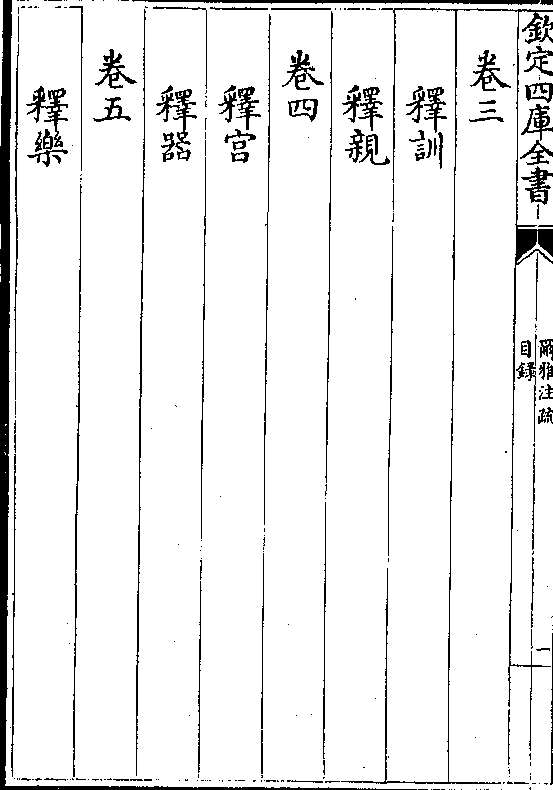 欽定四庫全書
爾雅注疏
目録
一
卷三
釋訓
釋親
卷四
釋宫
釋器
卷五
釋樂